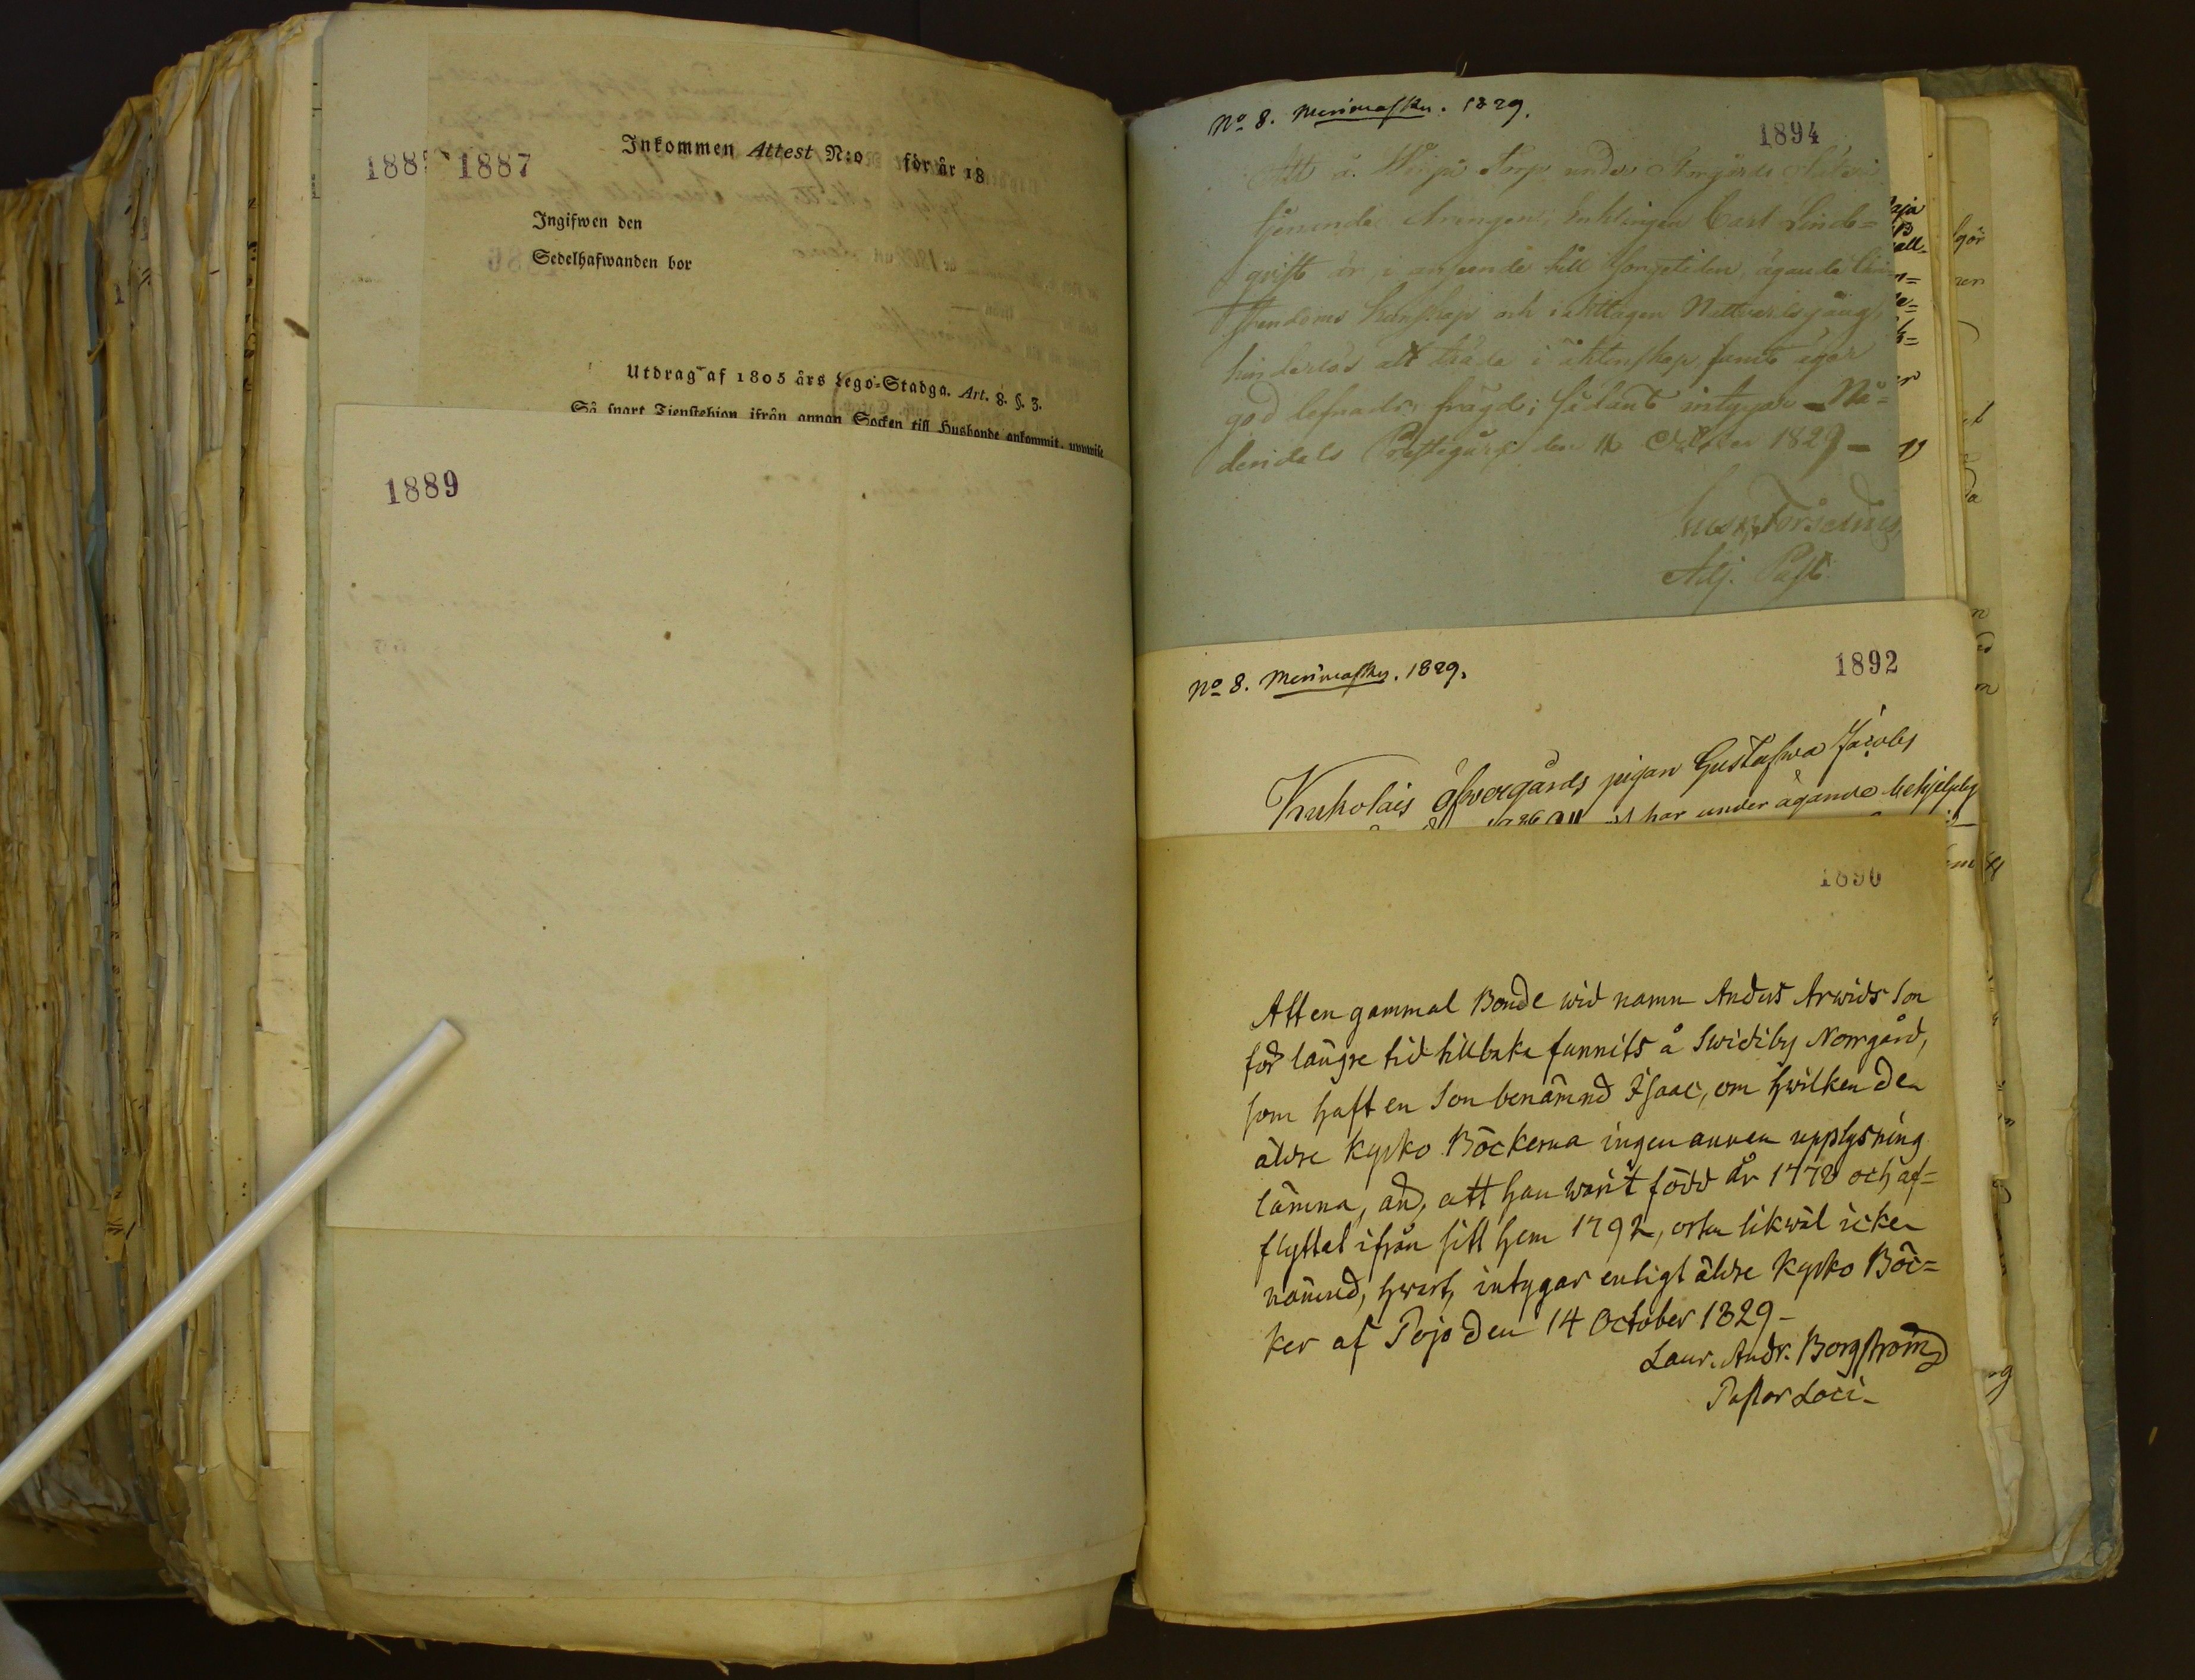 1885 1887
Inkommen Attest N:o för år 18
Ingifwen den
Sedelhafwanden bor
Utdrag af 1805 års Lego-Stadga. Art. 8. §. 3.
Så snart Tienstehjon ifrån annan Socken till Husbonde ankommit, uppwise
1889
No 8. Merimasku. 1829.
1894
Att å Torp under
tjenande Enklingen Carl Linde=
qvist är, i anseende till Sorgetiden, ägande
stendoms kunskap och iakttagen Nattvardsgång,
hinderlös att träda i äktenskap, samt äger
god lefnads frägd; sådant intygar Nå=
dendals Prästegård den 11 October 1829 –
Adj. Past.
No 8. Merimasku. 1829.
1892
Kukolais Öfvergårds pigan Gustafwa Jacobs
har under ägande behjelplig
1890
Att en gammal Bonde wid namn Anders Arwids Son
för längre tid tillbaka funnits å Swidiby Norrgård,
som haft en Son benämnd Isaac, om hwilken de
äldre Kyrko Böckerna ingen annan upplysning
lämna, än, att han warit född år 1772 och af=
flyttat ifrån sitt hem 1792, orten likwäl icke
nämnd, hwart, intygar enligt äldre Kyrko Böc=
ker af Pojo den 14 October 1829 –
Laur. Andr. Borgström
Pastor Loci –